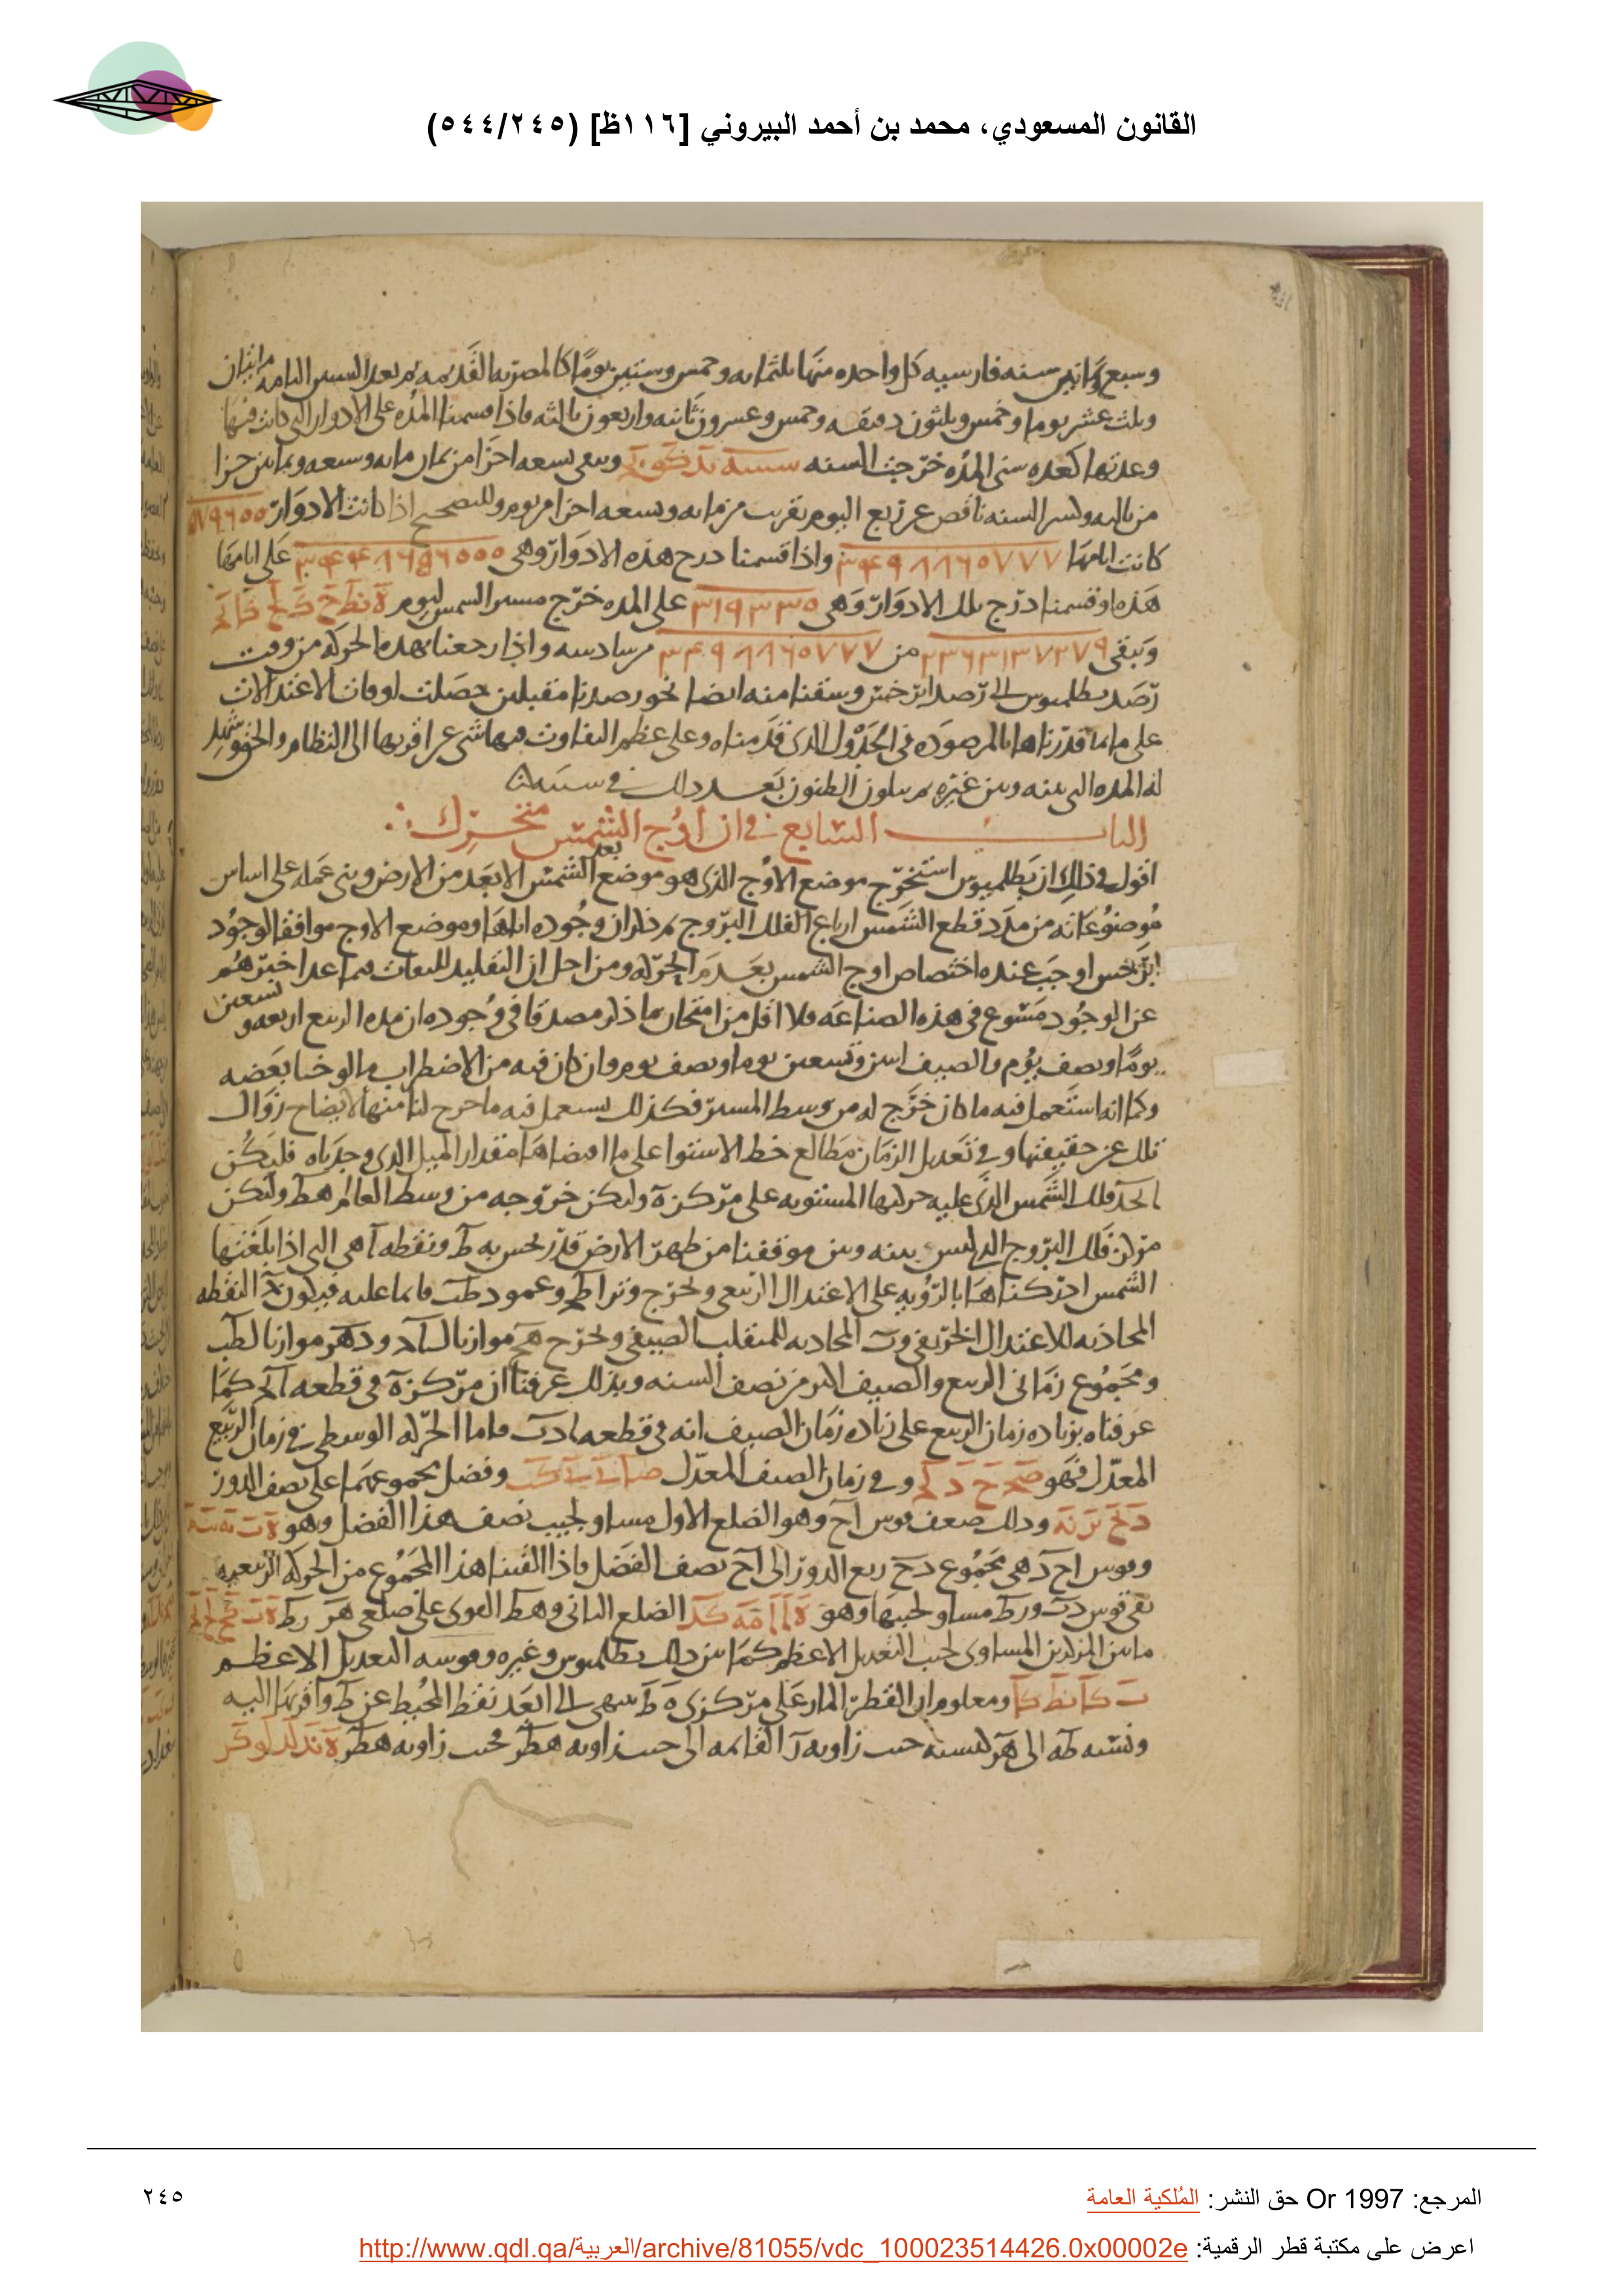 القانون المسعودي، محمد بن أحمد البيروني [١١٦ظ] (٥٤٤/٢٤٥)
وسبع وثمانين سنه فارسيه كل واحده منها ثلثمايه وخمس وستين يوما كالمصريه القديمه ثم بعد السنين التامه مايتان
وثلث عشر يوما وخمس وثلثون دقيقه وخمس وعشرون ثانيه واربعون ثالثه فاذا قسمنا المده على الادوار التى كانت فيها
وعدتها كعده سنى المده خرجت السنه ويبقى تسعه اجزا من ثمان مايه وسبعه وثمانين جزا
من ثالثه وكسر السنه ناقص عن ربع اليوم بقريب من مايه وتسعه اجزا من يوم وللتصحيح اذا كانت الادوار
كانت ايامها ٣٤٩٨٨٦٥٧٧٧ واذا قسمنا درج هذه الادوار وهى على ايامها
هذه او قسمنا درج تلك الادوار وهى ٣١٩٣٣٥ على المده خرج مسير الشمس ليوم
وتبقى ٢٣٦٣١٣٧٢٧٩ من ٣٤٩٨٨٦٥٧٧٧ من سادسه واذا رجعنا بهذه الحركه من وقت
رصد بطلميوس الى رصد ابرخس وسقنا منه ايضا نحو رصدنا مقبلين حصلت اوقات الاعتدالات
على ما قدرناها بالمرصوده فى الجدول الذى قدمناه وعلى عظم التفاوت فيها شى عن اقربها الى النظام والحق وشهد
له المده التى بينه وبين غيره
الباب السابع فى ان اوج الشمس متحرك
اقول فى ذلك ان بطلميوس استخرج موضع الاوج الذى هو موضع بعد الشمس الابعد من الارض وبنى عمله على اساس
موضوعاته من مدد قطع الشمس ارباع الفلك البروج ثم ذكر ان وجوده اياها وموضع الاوج موافقا لوجود
ابرخس اوجب عنده اختصاص اوج الشمس بعدم الحركه ومن اجل ان التقليد للثقات فيما عدا خبرهم
عن الوجود ممنوع فى هذه الصناعه فلا اقل من امتحان ما ذكر مصدقا فى وجوده ان مده الربيع اربعه وتسعين
يوما ونصف يوم والصيف اثنين وتسعين يوما ونصف يوم وان كان فيه من الاضطراب ما لوحنا بعضه
وكما انه استعمل فيه ما كان خرج له من وسط المسير فكذلك نستعمل فيه ما خرج لنا منها لايضاح زوال
تلك عن حقيقتها وفى تعديل الزمان مطالع خط الاستوا على ما اقتضاها مقدار الميل الذى وجدناه فليكن
ابجد فلك الشمس الذى عليه حركتها المستويه على مركز ه وليكن خروجه من وسط العالم هط وليكن
مركز فلك البروج الذى ليس بينه وبين موقفنا من ظهر الارض قدر يحس به ط ونقطه ا هى التى اذا بلغتها
الشمس ادركناها بالرؤيه على الاعتدال الربيعى ونخرج وتر اطج وعمود دطب قائما عليه فيكون ج النقطه
المحاذيه للاعتدال الخريفى وب المحاذيه للمنقلب الصيفى ونخرج هح موازيا لباد ودهز موازيا لطب
ومجموع زمانى الربيع والصيف اكثر من نصف السنه وبذلك عرفنا ان مركز ه فى قطعه ابج كما
عرفناه بزياده زمان الربيع على زياده زمان الصيف انه فى قطعه بادب فاما الحركه الوسطى فى زمان الربيع
المعدل فهو وفى زمان الصيف المعدل وفضل مجموعهما على نصف الدور
وذلك ضعف قوس اح وهو الضلع الاول مساو لجيب نصف هذا الفضل وهو
وقوس اح د هى مجموع دح ربع الدور الى اح نصف الفضل فاذا القينا هذا المجموع من الحركه الربيعيه
بقى قوس دب ورط مساو لجيبها وهو الضلع الثانى وهط القوى على ضلعى هز رط
ما بين المركزين المساوى لجيب التعديل الاعظم كما بين ذلك بطلميوس وغيره وقوسه التعديل الاعظم
ومعلوم ان القطر المار على مركزى ه ط ينتهى الى ابعد نقط المحيط عن ط واقربها اليه
ونسبه طه الى هز كنسبه جيب زاويه ز القائمه الى جيب زاويه هطز فجيب زاويه هطز
المرجع: Or 1997 حق النشر: المُلكية العامة
٢٤٥
اعرض على مكتبة قطر الرقمية: http://www.qdl.qa/العربية/archive/81055/vdc_100023514426.0x00002e